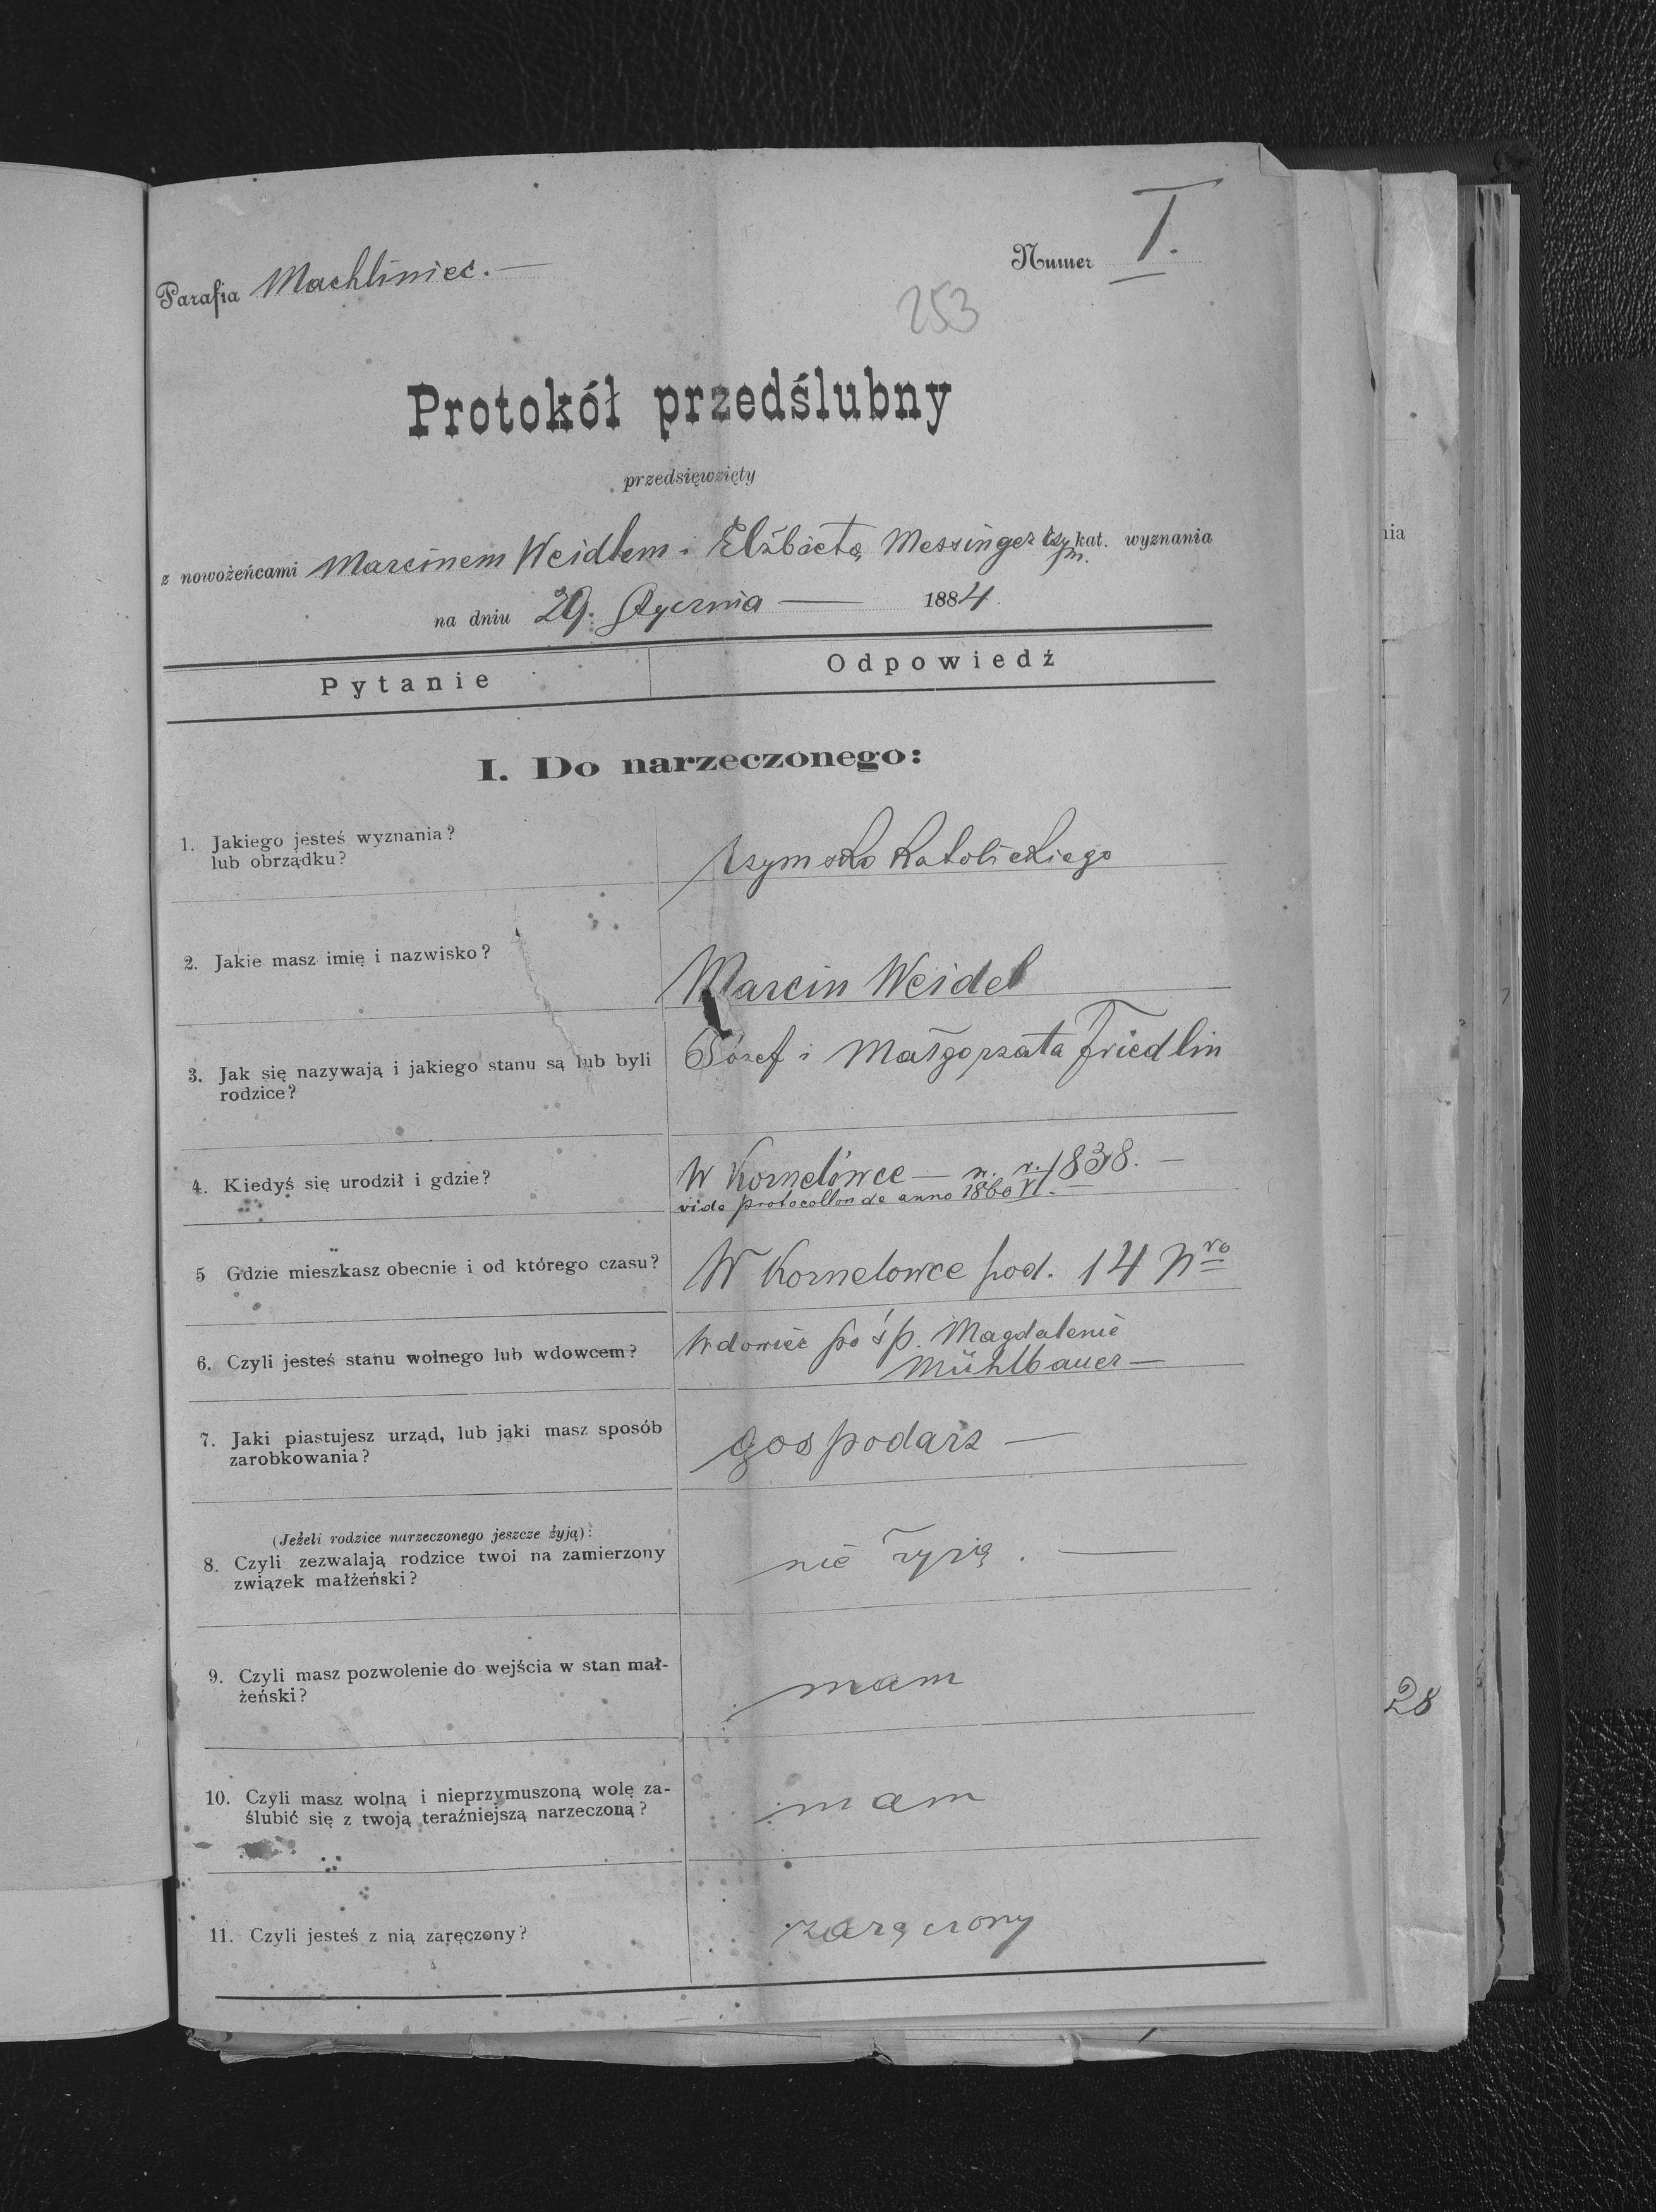 Parafia Machliniec. —
Numer I.
253
Protokół przedślubny
przedsięwzięty
z nowożeńcami Marcinem Weidlem i Elżbietą Messinger rzym. kat. wyznania
na dniu 29. Stycznia — 1884.
Pytanie
Odpowiedź
I. Do narzeczonego:
1. Jakiego jesteś wyznania?
lub obrządku?
rzymsko katolickiego
2. Jakie masz imię i nazwisko?
Marcin Weidel
3. Jak się nazywają i jakiego stanu są lub byli
rodzice?
Józef i Małgorzata Friedlin
4. Kiedyś się urodził i gdzie?
W Kornelówce — w. r. 1838. —
vide protocollon de anno 1860 VI. —
5 Gdzie mieszkasz obecnie i od którego czasu?
W Kornelowce pod. 14 Nro
6. Czyli jesteś stanu wolnego lub wdowcem?
Wdowiec po śp. Magdalenie
Mühlbauer —
7. Jaki piastujesz urząd, lub jaki masz sposób
zarobkowania?
gospodarz —
(Jeżeli rodzice narzeczonego jeszcze żyją):
8. Czyli zezwalają rodzice twoi na zamierzony
związek małżeński?
nie żyją. —
9. Czyli masz pozwolenie do wejścia w stan mał-
żeński?
mam
10. Czyli masz wolną i nieprzymuszoną wolę za-
ślubić się z twoją teraźniejszą narzeczoną?
mam
11. Czyli jesteś z nią zaręczony?
zaręczony
nia
28